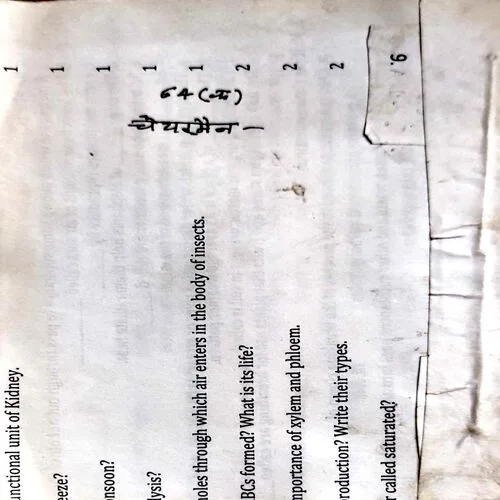 unctional unit of Kidney. 1
eeze? 1
onsoon? 1
lysis? 1
holes through which air enters in the body of insects. 1
BCs formed? What is its life? 2
mportance of xylem and phloem. 2
roduction? Write their types. 2
r called saturated?
9.
चैयरमैन —